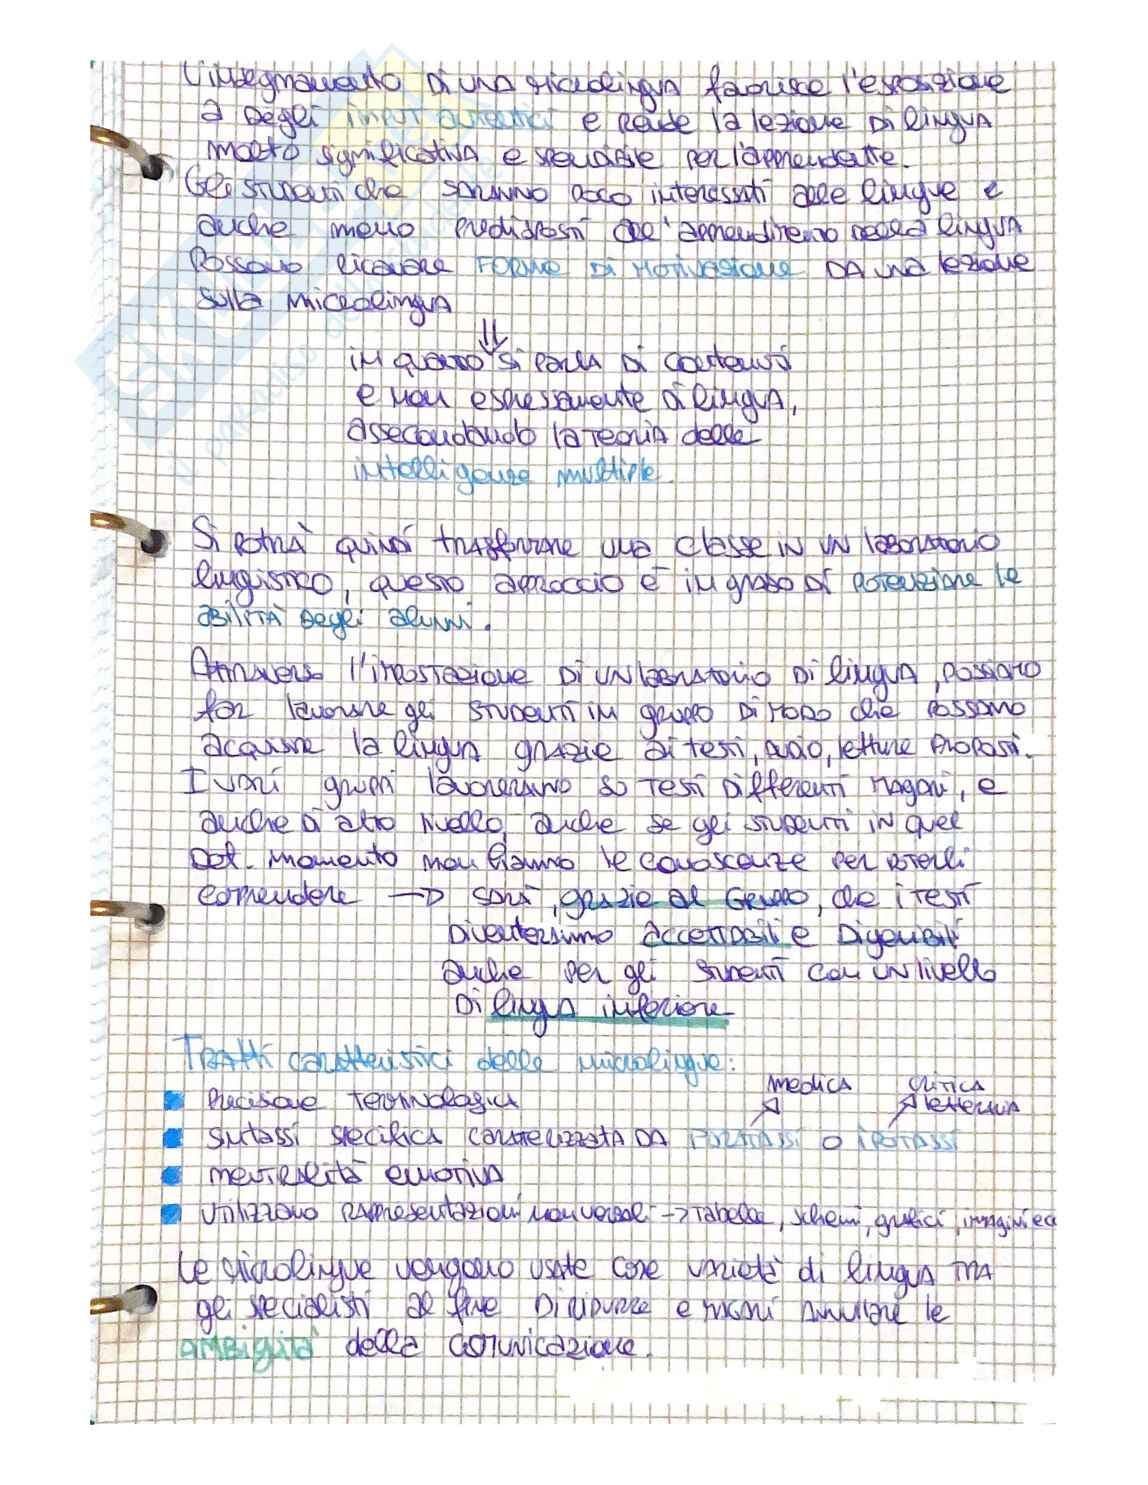 L'insegnamento di una microlingua favorisce l'esposizione
a degli input autentici e rende la lezione di lingua
molto significativa e spendibile per l'apprendente.
Gli studenti che saranno poco interessati alle lingue e
anche meno predisposti all'apprendimento della lingua
possono ricavare forme di motivazione da una lezione
sulla microlingua
⇓
in quanto si parla di contenuti
e non espressamente di lingua,
assecondando la teoria delle
intelligenze multiple.
Si potrà quindi trasformare una classe in un laboratorio
linguistico, questo approccio è in grado di potenziare le
abilità degli alunni.
Attraverso l'impostazione di un laboratorio di lingua, possiamo
far lavorare gli studenti in gruppo di modo che possano
acquisire la lingua grazie ai testi, audio, letture proposti.
I vari gruppi lavoreranno su testi differenti magari, e
anche di alto livello, anche se gli studenti in quel
det. momento non hanno le conoscenze per poterli
comprendere → sarà, grazie al gruppo, che i testi
diventeranno accettabili e digeribili
anche per gli studenti con un livello
di lingua inferiore
Tratti caratteristici delle microlingue:
medica critica
letteraria
▪ Precisione terminologica
▪ sintassi specifica caratterizzata da paratassi o ipotassi
▪ neutralità emotiva
▪ utilizzano rappresentazioni non verbali → tabelle, schemi, grafici, immagini ecc
Le microlingue vengono usate come varietà di lingua tra
gli specialisti al fine di ridurre e magari annullare le
ambiguità della comunicazione.